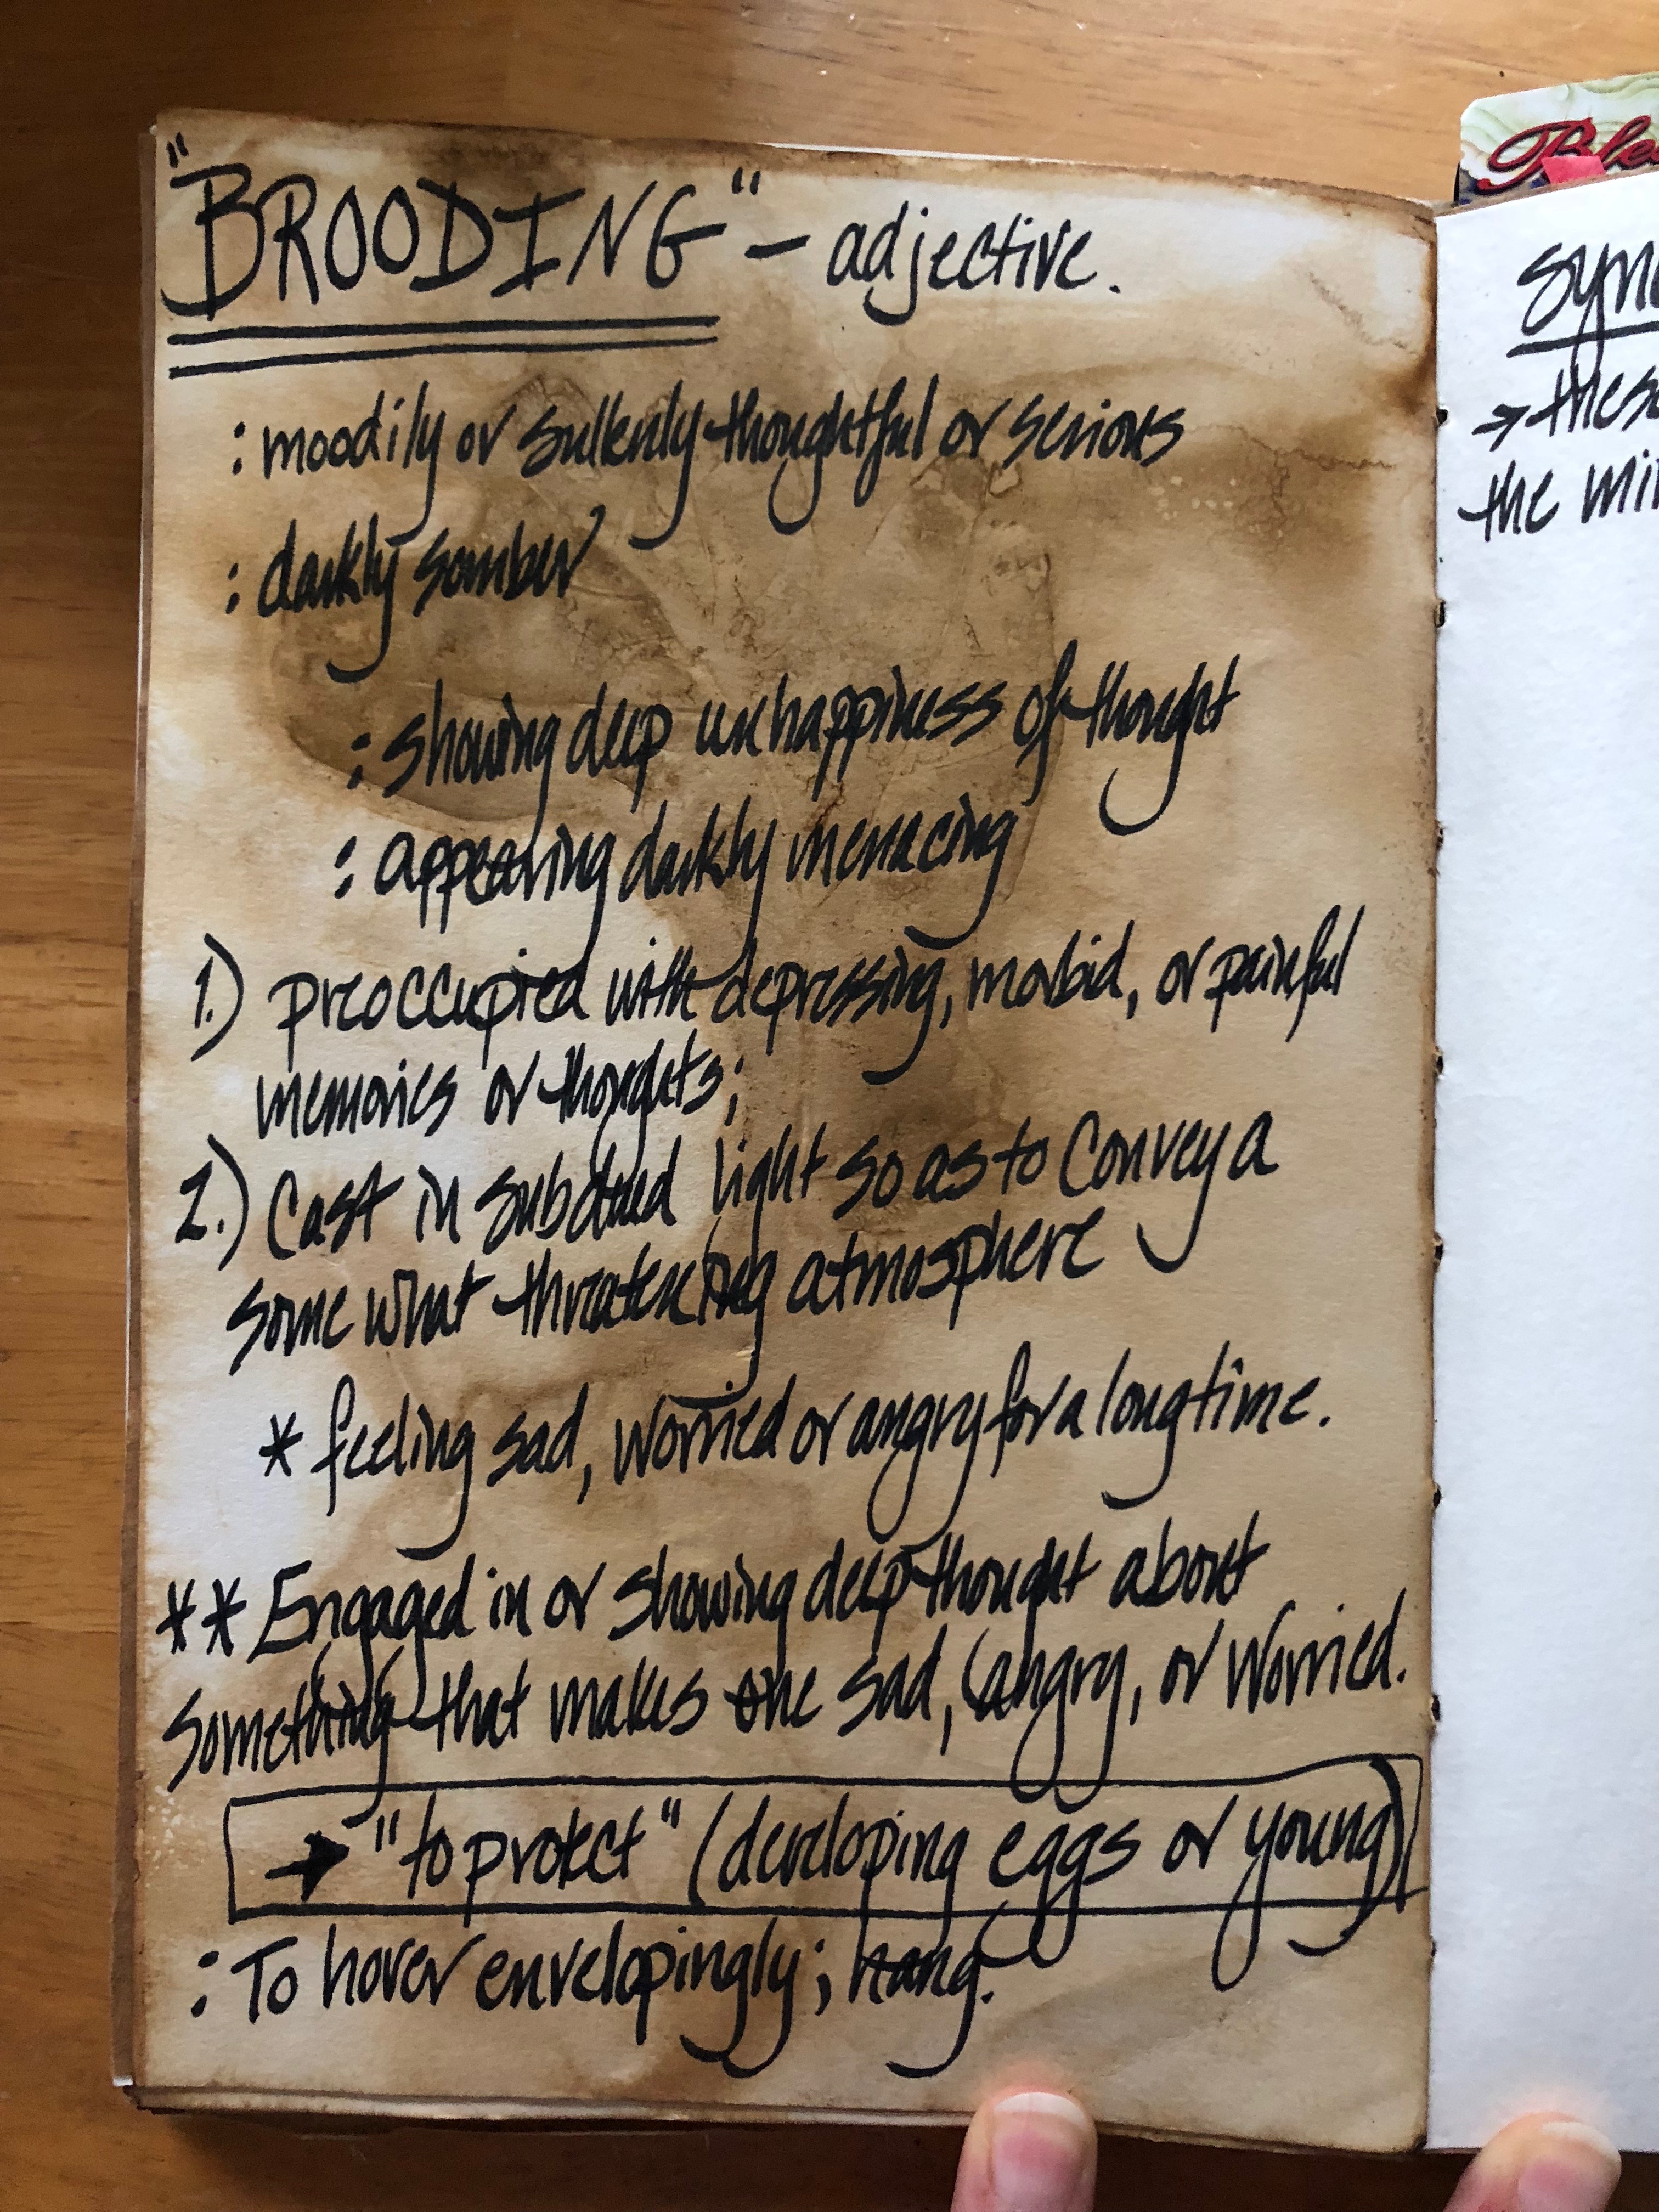 "BROODING" – adjective.
: moodily or sullenly thoughtful or serious
: darkly somber
: showing deep unhappiness of thought
: appearing darkly menacing
1.) preoccupied with depressing, morbid, or painful
memories or thoughts;
2.) Cast in subdued light so as to convey a
some what threatening atmosphere
* feeling sad, worried or angry for a long time.
** Engaged in or showing deep thought about
something that makes one sad, angry, or worried.
→ "to protect" (developing eggs or young)
: To hover envelopingly; hang.
→ these
the